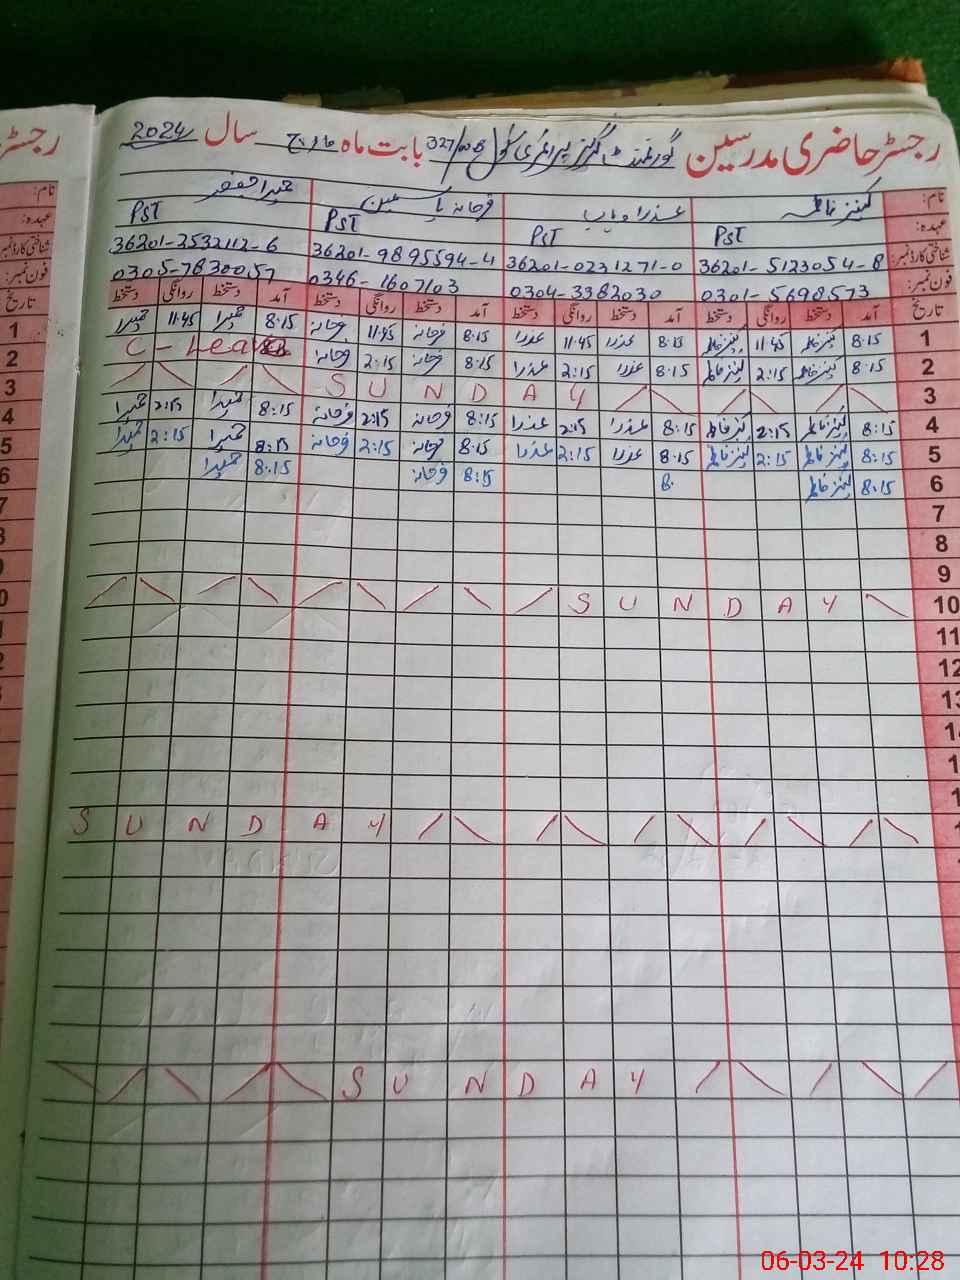 رجسٹر حاضری مدرسین گورنمنٹ گرلز پرائمری سکول 327/WB بابت ماہ مارچ سال 2024
نام: کنیز فاطمہ عذرا وہاب فرحانہ یاسمین حمیرا جعفر
عہدہ: PST PST PST PST
شناختی کارڈ نمبر: 36201-5123054-8 36201-0231271-0 36201-9895594-4 36201-2532112-6
فون نمبر: 0301-5698573 0304-3382030 0346-1607103 0305-7830057
تاریخ آمد دستخط روانگی دستخط آمد دستخط روانگی دستخط آمد دستخط روانگی دستخط آمد دستخط روانگی دستخط تاریخ
1 8:15 کنیز فاطمہ 11:45 کنیز فاطمہ 8:15 عذرا 11:45 عذرا 8:15 فرحانہ 11:45 فرحانہ 8:15 حمیرا 11:45 حمیرا 1
2 8:15 کنیز فاطمہ 2:15 کنیز فاطمہ 8:15 عذرا 2:15 عذرا 8:15 فرحانہ 2:15 فرحانہ C - Leave 2
3 SUNDAY 3
4 8:15 کنیز فاطمہ 2:15 کنیز فاطمہ 8:15 عذرا 2:15 عذرا 8:15 فرحانہ 2:15 فرحانہ 8:15 حمیرا 2:15 حمیرا 4
5 8:15 کنیز فاطمہ 2:15 کنیز فاطمہ 8:15 عذرا 2:15 عذرا 8:15 فرحانہ 2:15 فرحانہ 8:15 حمیرا 2:15 حمیرا 5
6 8:15 کنیز فاطمہ 8. 8:15 فرحانہ 8:15 حمیرا 6
7
8
9
10 SUNDAY
11
12
13
SUNDAY
SUNDAY
06-03-24 10:28